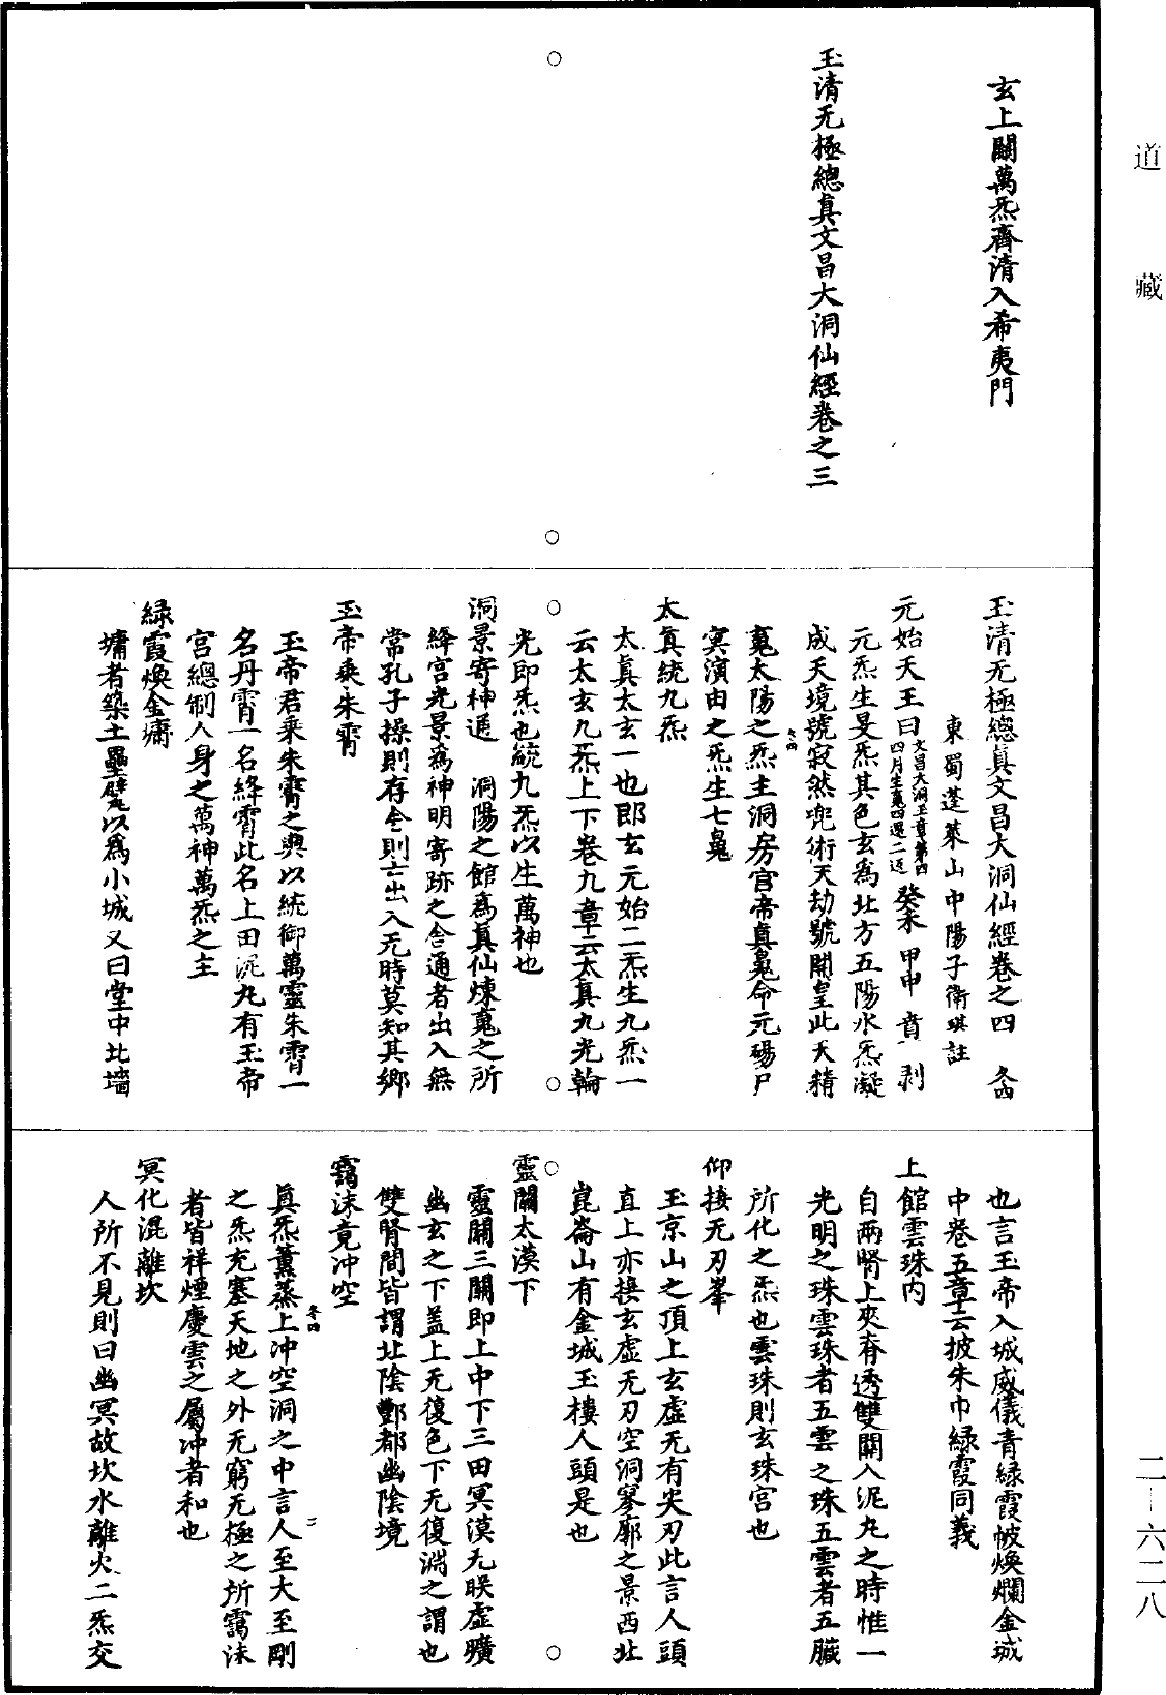 道藏
玄上關萬炁齊清入希夷門
玉清无極總真文昌大洞仙經卷之三
玉清无極總真文昌大洞仙經卷之四 冬四
東蜀蓬萊山中陽子衛琪註
元始天王曰 文昌大洞玉章第四 四月生炁四過二返 癸未 甲申 賁 剥
元炁生旻炁其色玄為北方五陽水炁凝
成天境號寂然兜術天劫號開皇此天精
䰟太陽之炁主洞房宮帝真䰟命元碭尸
冥演由之炁生七䰟
太真統九炁
太真太玄一也即玄元始二炁生九炁一
云太玄九炁上下卷九章云太真九光輪
光即炁也統九炁以生萬神也
洞景寄神通 洞陽之館為真仙煉䰟之所
絳宮光景為神明寄跡之舍通者出入無
常孔子操則存舍則亡出入无時莫知其鄉
玉帝乘朱霄
玉帝君乘朱霄之輿以統御萬靈朱霄一
名丹霄一名絳霄此名上田泥丸有玉帝
宮總制人身之萬神萬炁之主
綠霞煥金墉
墉者築土壘壁以為小城又曰堂中北墻
也言玉帝入城威儀青綠霞帔煥爛金城
中卷五章云披朱巾綠霞同義
上館雲珠內
自兩腎上夾脊透雙關入泥丸之時惟一
光明之珠雲珠者五雲之珠五雲者五臟
所化之炁也雲珠則玄珠宮也
仰接无刃峯
玉京山之頂上玄虛无有尖刃此言人頭
直上亦接玄虛无刃空洞寥廓之景西北
崑崙山有金城玉樓人頭是也
靈關太漠下
靈關三關即上中下三田冥漠无睽虛曠
幽玄之下蓋上无復色下无復淵之謂也
雙腎間皆謂北陰酆都幽陰境
靄沫竟冲空
真炁薰蒸上冲空洞之中言人至大至剛
之炁充塞天地之外无窮无極之所靄沫
者皆祥煙慶雲之屬冲者和也
冥化混離坎
人所不見則曰幽冥故坎水離火二炁交
冬四
冬四 二
二－六二八